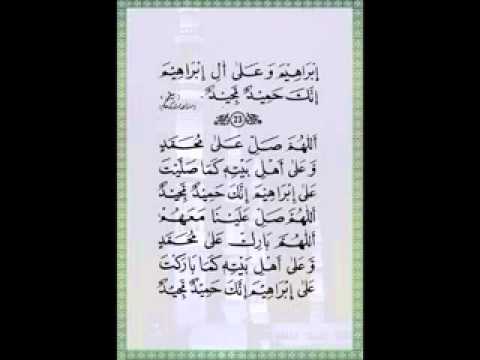 اِبْرَاهِيْمَ وَ عَلٰى اٰلِ اِبْرَاهِيْمَ
اِنَّكَ حَمِيْدٌ مَّجِيْدٌ ۔
23
اَللّٰهُمَّ صَلِّ عَلٰى مُحَمَّدٍ
وَّ عَلٰى اَهْلِ بَيْتِهٖ كَمَا صَلَّيْتَ
عَلٰى اِبْرَاهِيْمَ اِنَّكَ حَمِيْدٌ مَّجِيْدٌ
اَللّٰهُمَّ صَلِّ عَلَيْنَا مَعَهُمْ
اَللّٰهُمَّ بَارِكْ عَلٰى مُحَمَّدٍ
وَّ عَلٰى اَهْلِ بَيْتِهٖ كَمَا بَارَكْتَ
عَلٰى اِبْرَاهِيْمَ اِنَّكَ حَمِيْدٌ مَّجِيْدٌ